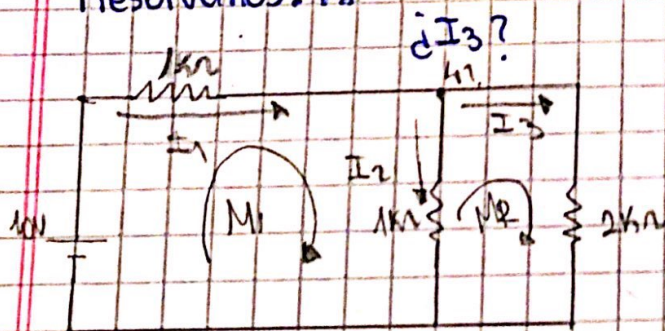 ¿I3?
1kΩ
I1
I3
I2
10V
M1
1kΩ
M2
2kΩ